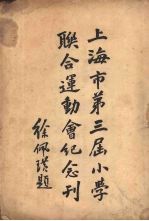 上海市第三屆小學
聯合運動會紀念刊
徐佩璜題